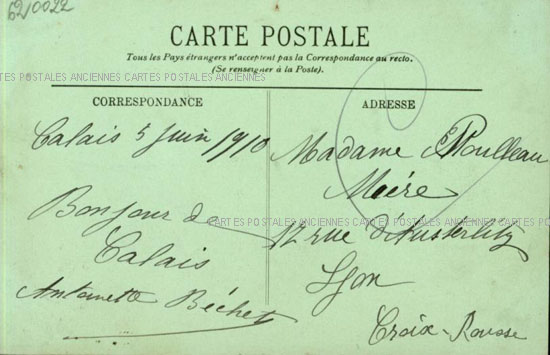 62/0022
CARTE POSTALE
Tous les Pays étrangers n'acceptent pas la Correspondance au recto.
(Se renseigner à la Poste).
CARTES POSTALES ANCIENNES CARTES POSTALES ANCIENNES CARTES POSTALES ANCIENNES
CORRESPONDANCE
Calais 5 Juin 1910
Bonjour de
Calais
Antoinette Béchet
ADRESSE
Madame
Mère
12 rue d'Austerlitz
Lyon
Croix-Rousse
CARTES POSTALES ANCIENNES CARTES POSTALES ANCIENNES